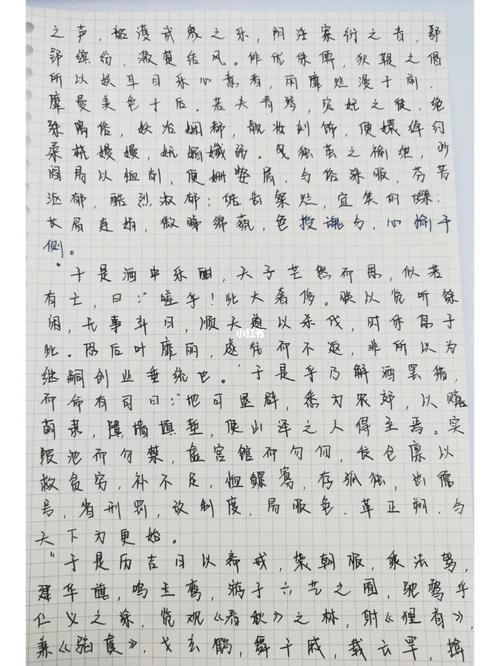 之声，韶濩武象之乐，阴淫案衍之音，鄢
郢缤纷，激楚结风。俳优侏儒，狄鞮之倡
所以娱耳目乐心意者，丽靡烂漫于前，
靡曼美色于后。若夫青琴、宓妃之徒，绝
殊离俗，妖冶娴都，靓妆刻饰，便嬛绰约
柔桡嫚嫚，妩媚孅弱。曳独茧之褕绁，眇
阎易以恤削，便姗嫳屑，与俗殊服，芬芳
沤郁，酷烈淑郁；皓齿粲烂，宜笑的皪；
长眉连娟，微睇绵藐，色授魂与，心愉于
侧。
“于是酒中乐酣，天子芒然而思，似若
有亡，曰：“嗟乎！此大奢侈。朕以览听余
闲，无事弃日，顺天道以杀伐，时休息于
小红书
此。恐后叶靡丽，遂往而不返，非所以为
继嗣创业垂统也。”于是乎乃解酒罢猎，
而命有司曰：“地可垦辟，悉为农郊，以赡
萌隶，隤墙填堑，使山泽之人得至焉。实
陂池而勿禁，虚宫馆而勿仞，发仓廪以
救贫穷，补不足，恤鳏寡，存孤独，出德
号，省刑罚，改制度，易服色，革正朔，与
天下为更始。
“于是历吉日以斋戒，袭朝服，乘法驾，
建华旗，鸣玉鸾，游于六艺之囿，驰骛乎
仁义之涂，览观《春秋》之林，射《狸首》，
兼《驺虞》，弋玄鹤，舞干戚，载云罕，揜